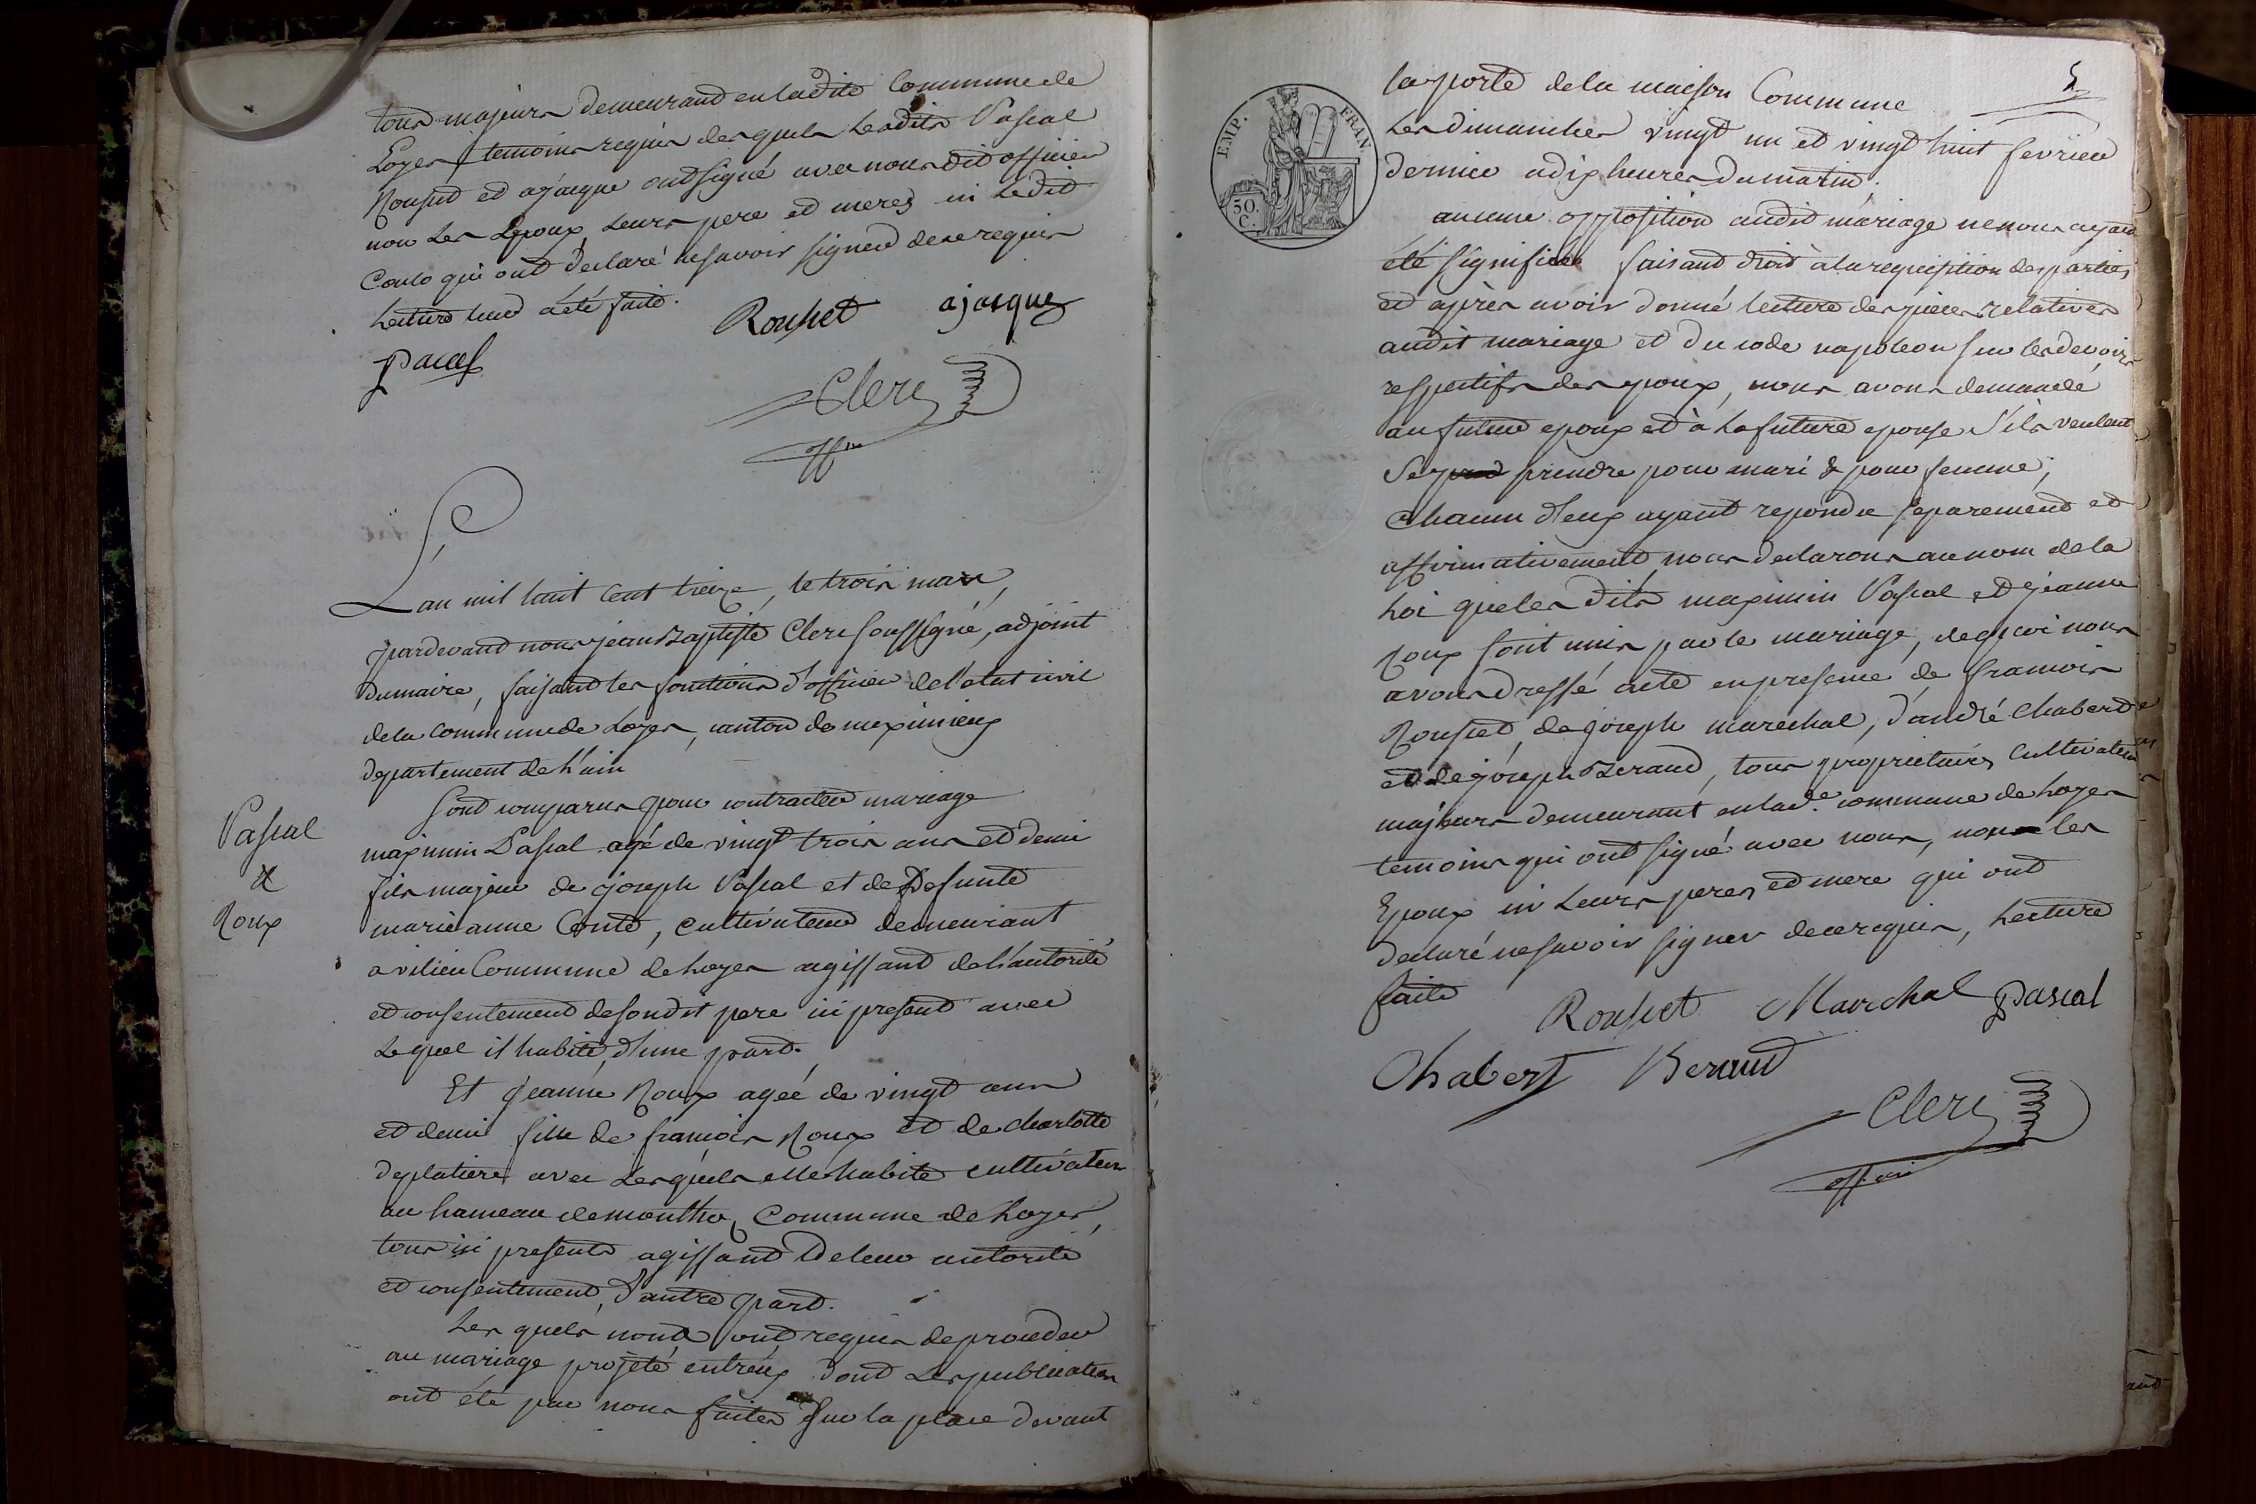 tous majeurs demeurand en ladite Commune de
Loyes temoins requis desquels lesdits Pascal
Rousset et ajacque ont signé avec nous dit officier
non les Epoux leurs pere et meres ni ledit
qui ont declaré ne savoir signer de ce requis
Lecture leur a été faite.
Rousset ajacque
Pascal
Clerc
offier
L'an mil huit cent treize, le trois mars,
pardevand nous jean Baptiste Clerc soussigné, adjoint
dumaire, faisand les fonctions d'officier de l'etat civil
de la commune de Loyes, canton de meximieux
departement de l'ain
Pascal
&
Roux
Sont comparus pour contracter mariage
maximin Pascal agé de vingt trois ans et demi
fils majeur de joseph Pascal et de Defunte
marieanne Conte, cultivateur demeurant
a vilieu Commune de Loyes agissand de l'autorité
et consentement desondit pere ici present avec
Lequel il habite, d'une part.
Et jeanne Roux agée de vingt ans
et demi fille de francois Roux et de charlotte
deplatiere avec Lesquels elle habite cultivateur
au hameau de monthoz Commune de Loyes,
tous ici presents agissand de leur autorité
et consentement, d'autre part.
Les quels nous ont requis de proceder
au mariage projeté entr'eux dont Les publication
ont été par nous faites sur la place devant
5
EMP. FRAN
50.
C.
la porte de la maison Commune
Les dimanches vingt un et vingt huit fevrier
dernier a dix heures du matin.
aucune opposition audit mariage ne nous ayant
été signifiée faisant droit à la requisition des parties
et après avoir donné lecture des pieces relatives
audit mariage et du code napoleon sur les devoirs
respectifs des epoux, nous avons demandé
au futur epoux et à La future epouse s'ils veulent
Se prendre pour mari & pour femme;
Chacun d'eux ayant repondu separement et
affirmativement, nous declarons au nom de la
Loi que les dits maximin Pascal et jeanne
Roux sont unis par le mariage, de quoi nous
avons dressé acte en presence de francois
Rousset, de joseph marechal, d'andré Chabert
et de joseph Beraud, tous proprietaires Cultivateurs
majeurs demeurant en lad.e commune de Loyes
temoins qui ont signé avec nous, non les
Epoux ni Leurs peres et mere qui ont
declaré ne savoir signer de ce requis, Lecture
faite
Rousset Marchal Pascal
Chabert Beraud
Clerc
offier